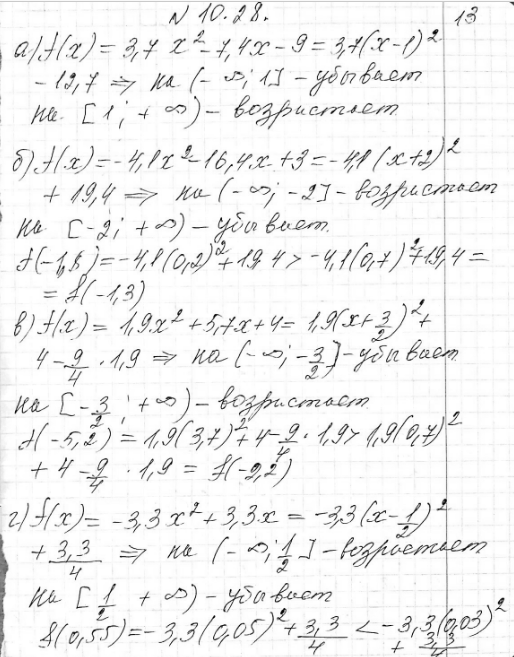 № 10.28. 13
а) f(x) = 3,7 x² - 7,4x - 9 = 3,7(x-1)²
- 12,7 ⇒ на (-∞; 1] - убывает
на [1; +∞) - возристает
б) f(x) = -4,1x² - 16,4x + 3 = -4,1(x+2)²
+ 19,4 ⇒ на (-∞; -2] - возристает
на [-2; +∞) - убывает
f(-1,8) = -4,1(0,2)² + 19,4 > -4,1(0,7)² + 19,4 =
= f(-1,3)
в) f(x) = 1,9x² + 5,7x + 4 = 1,9(x + 3/2)² +
4 - 9/4 · 1,9 ⇒ на (-∞; -3/2] - убывает
на [-3/2; +∞) - возристает
f(-5,2) = 1,9(3,7)² + 4 - 9/4 · 1,9 > 1,9(0,7)²
+ 4 - 9/4 · 1,9 = f(-2,2)
г) f(x) = -3,3x² + 3,3x = -3,3(x - 1/2)²
+ 3,3/4 ⇒ на (-∞; 1/2] - возрастает
на [1/2 +∞) - убывает
f(0,55) = -3,3(0,05)² + 3,3/4 < -3,3(0,03)²
+ 3,3/4